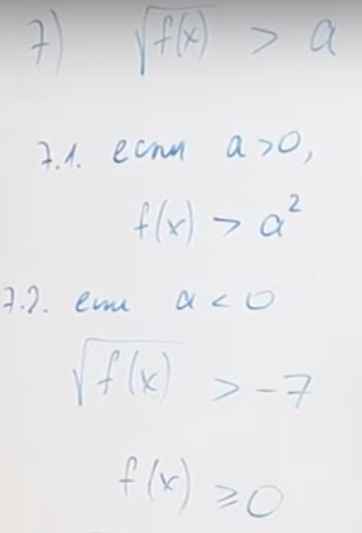 7) √f(x) > a
7.1. если a>0,
f(x) > a²
7.2. если a < 0
√f(x) > -7
f(x) ≥ 0